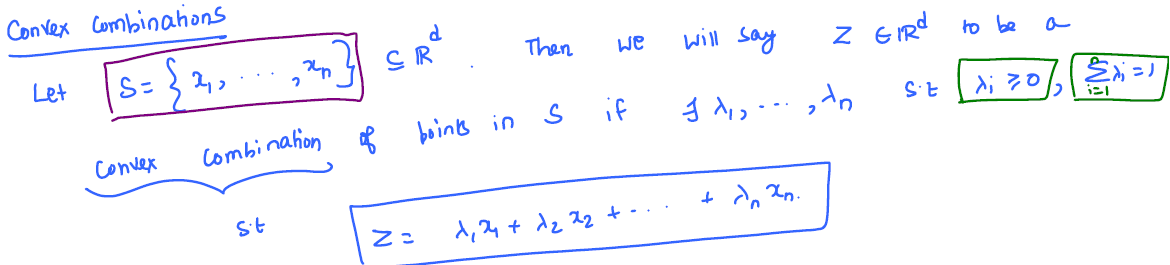 Convex Combinations
Let S = { x₁, ..., xₙ } ⊆ ℝᵈ. Then we will say Z ∈ ℝᵈ to be a
Convex Combination of points in S if ∃ λ₁, ..., λₙ s.t λᵢ ≥ 0, ∑ᵢ₌₁ⁿ λᵢ = 1
s.t Z = λ₁x₁ + λ₂x₂ + .... + λₙxₙ.